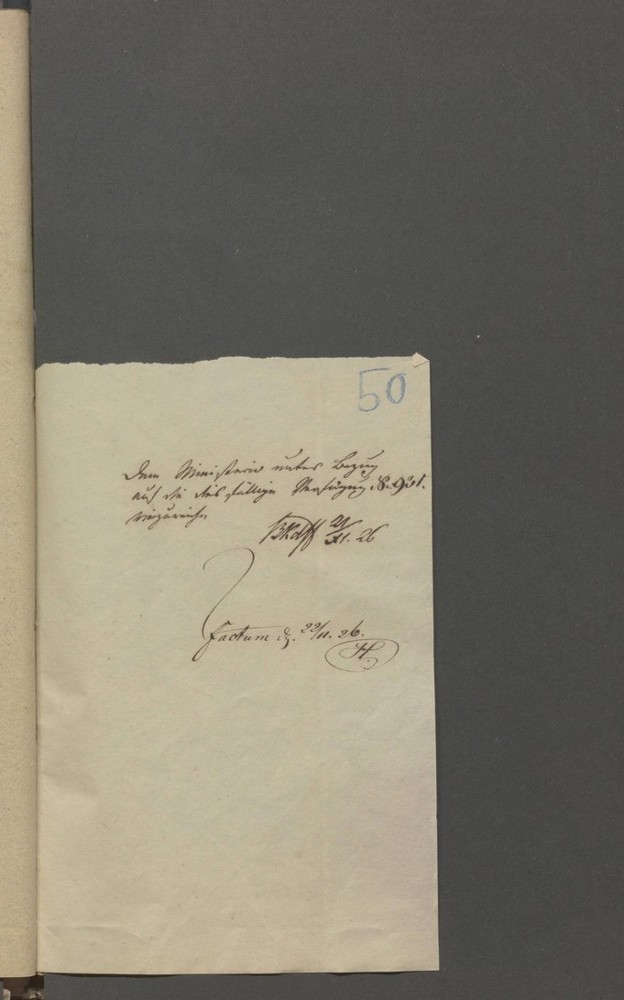 50
Dem Ministerio unter Bezug
auf die dies fällige Verfügung S. 931.
einzureichen
21/XI. 26
factum d. 22/11. 26.
H.